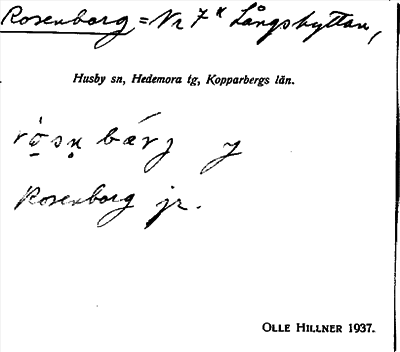 Rosenborg = Nr 7 Långshyttan,
Husby sn, Hedemora tg, Kopparbergs län.
Rosenborg jr.
OLLE HILLNER 1937.